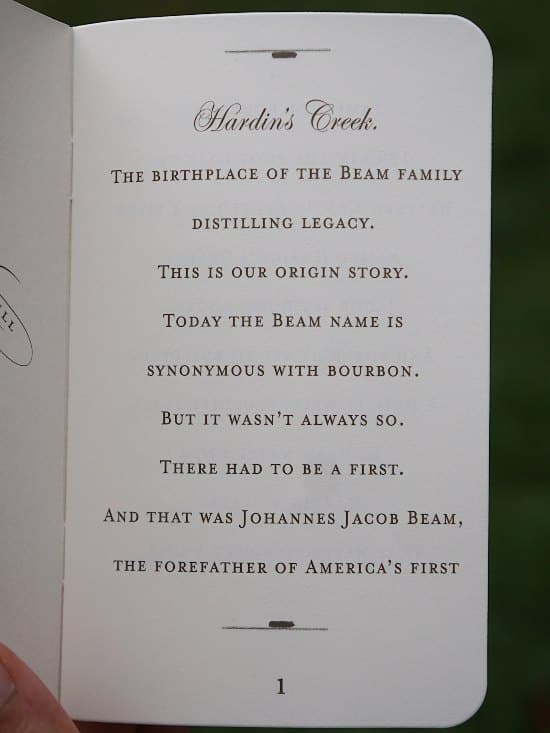 Hardin's Creek.
The birthplace of the Beam family
distilling legacy.
This is our origin story.
Today the Beam name is
synonymous with bourbon.
But it wasn't always so.
There had to be a first.
And that was Johannes Jacob Beam,
the forefather of America's first
1